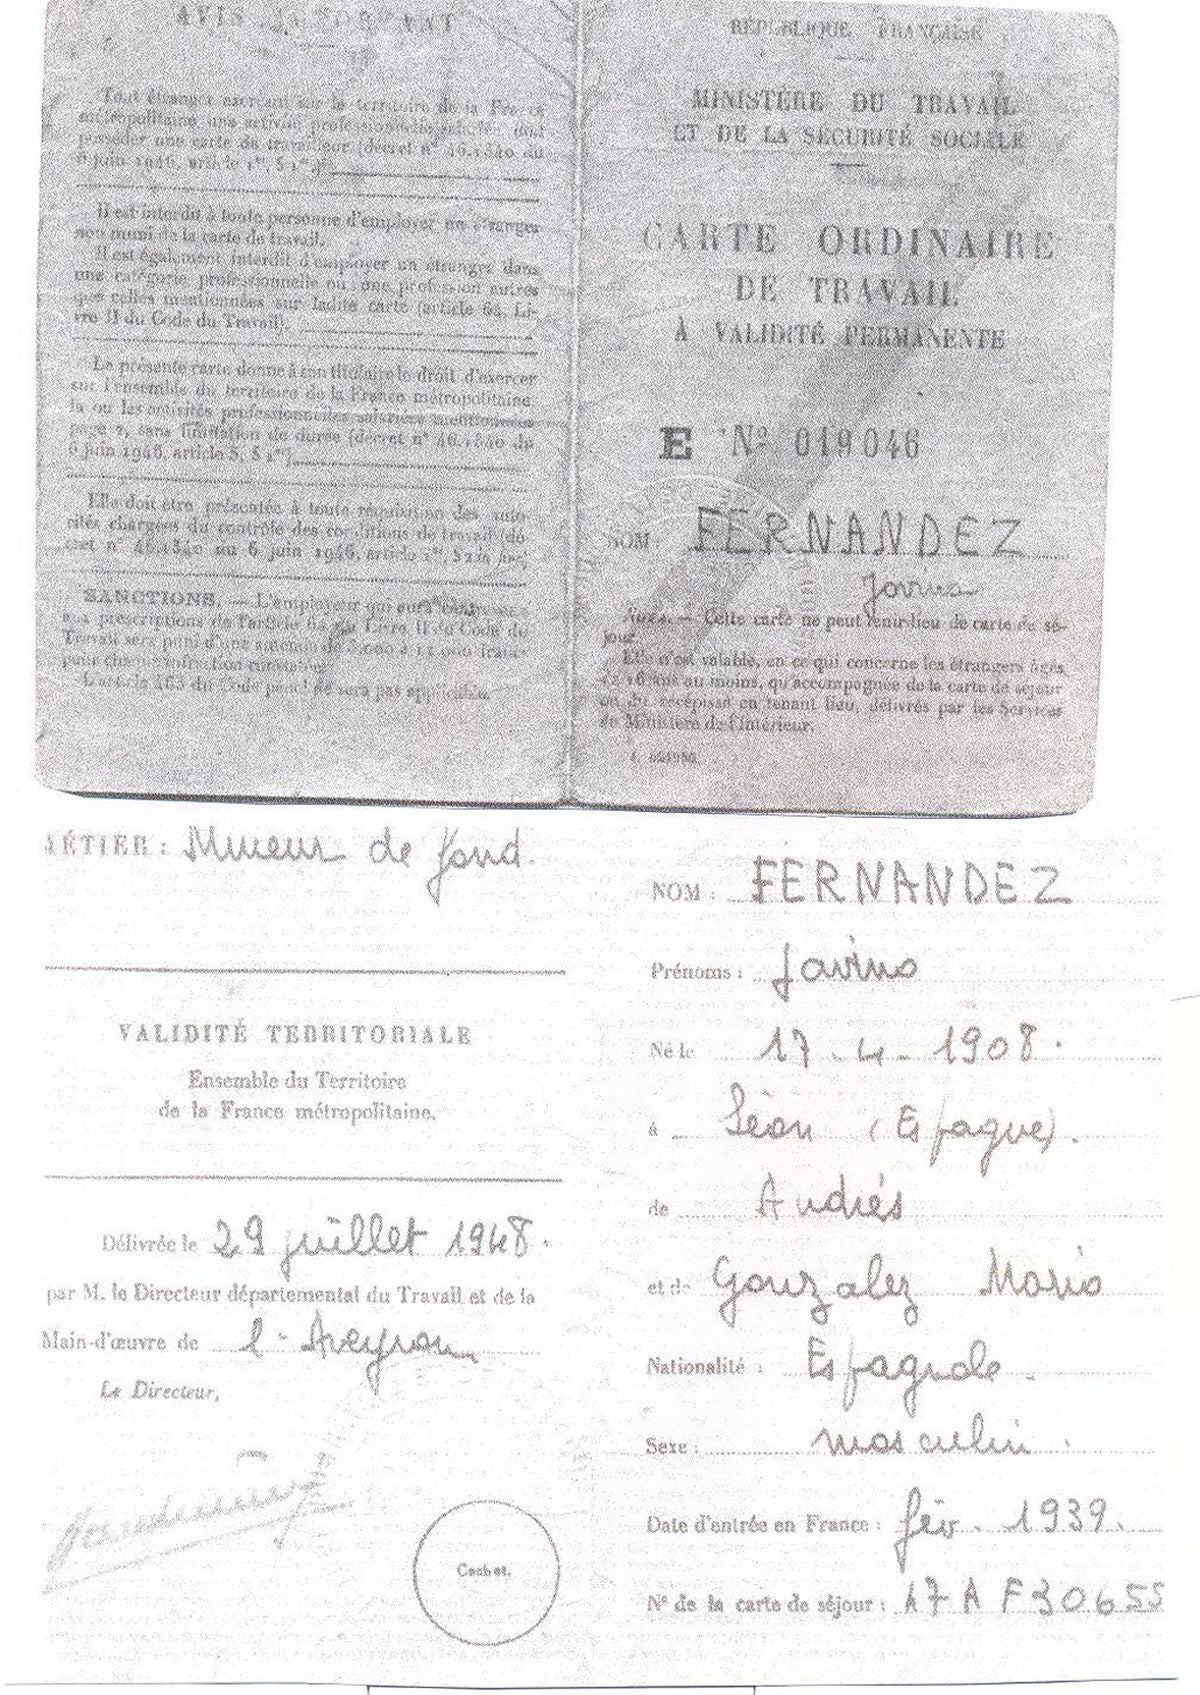 AVIS IMPORTANT
Tout étranger exerçant sur le territoire de la France
métropolitaine une activité professionnelle salariée doit
posséder une carte de travailleur (décret n° 46.1340 du
6 juin 1946, article 1er, § 1er)
Il est interdit à toute personne d'employer un étranger
non muni de la carte de travail.
Il est également interdit d'employer un étranger dans
une catégorie professionnelle ou une profession autres
que celles mentionnées sur ladite carte (article 64, Li-
vre II du Code du Travail).
La présente carte donne à son titulaire le droit d'exercer
sur l'ensemble du territoire de la France métropolitaine
la ou les activités professionnelles salariées mentionnées
page 2, sans limitation de durée (décret n° 46.1340 du
6 juin 1946, article 5, § 1er)
Elle doit être présentée à toute réquisition des auto-
rités chargées du contrôle des conditions de travail (dé-
cret n° 46.1340 du 6 juin 1946, article 1er, § 2
SANCTIONS. — L'employeur qui aura
aux prescriptions de l'article 64 du Livre II du Code du
Travail sera puni d'une amende de 3.000 à 12.000 francs
pour chaque infraction constatée
L'article 463 du Code pénal ne sera pas applicable.
RÉPUBLIQUE FRANÇAISE
MINISTÈRE DU TRAVAIL
ET DE LA SÉCURITÉ SOCIALE
CARTE ORDINAIRE
DE TRAVAIL
À VALIDITÉ PERMANENTE
E N° 019046
NOM : FERNANDEZ
Jovino
NOTA. — Cette carte ne peut tenir lieu de carte de sé-
jour.
Elle n'est valable, en ce qui concerne les étrangers âgés
de 16 ans au moins, qu'accompagnée de la carte de séjour
ou du récépissé en tenant lieu, délivrés par les Services
du Ministère de l'Intérieur.
MÉTIER : Mineur de fond.
VALIDITÉ TERRITORIALE
Ensemble du Territoire
de la France métropolitaine.
Délivrée le 29 juillet 1948.
par M. le Directeur départemental du Travail et de la
Main-d'œuvre de l'Aveyron
Le Directeur,
Cachet.
NOM : FERNANDEZ
Prénoms : Jovino
Né le 17-4-1908.
à Léon (Espagne).
de Andrés
et de Gonzalez Maria
Nationalité : Espagnole
Sexe : masculin.
Date d'entrée en France : fév. 1939.
N° de la carte de séjour : 17 A F30655